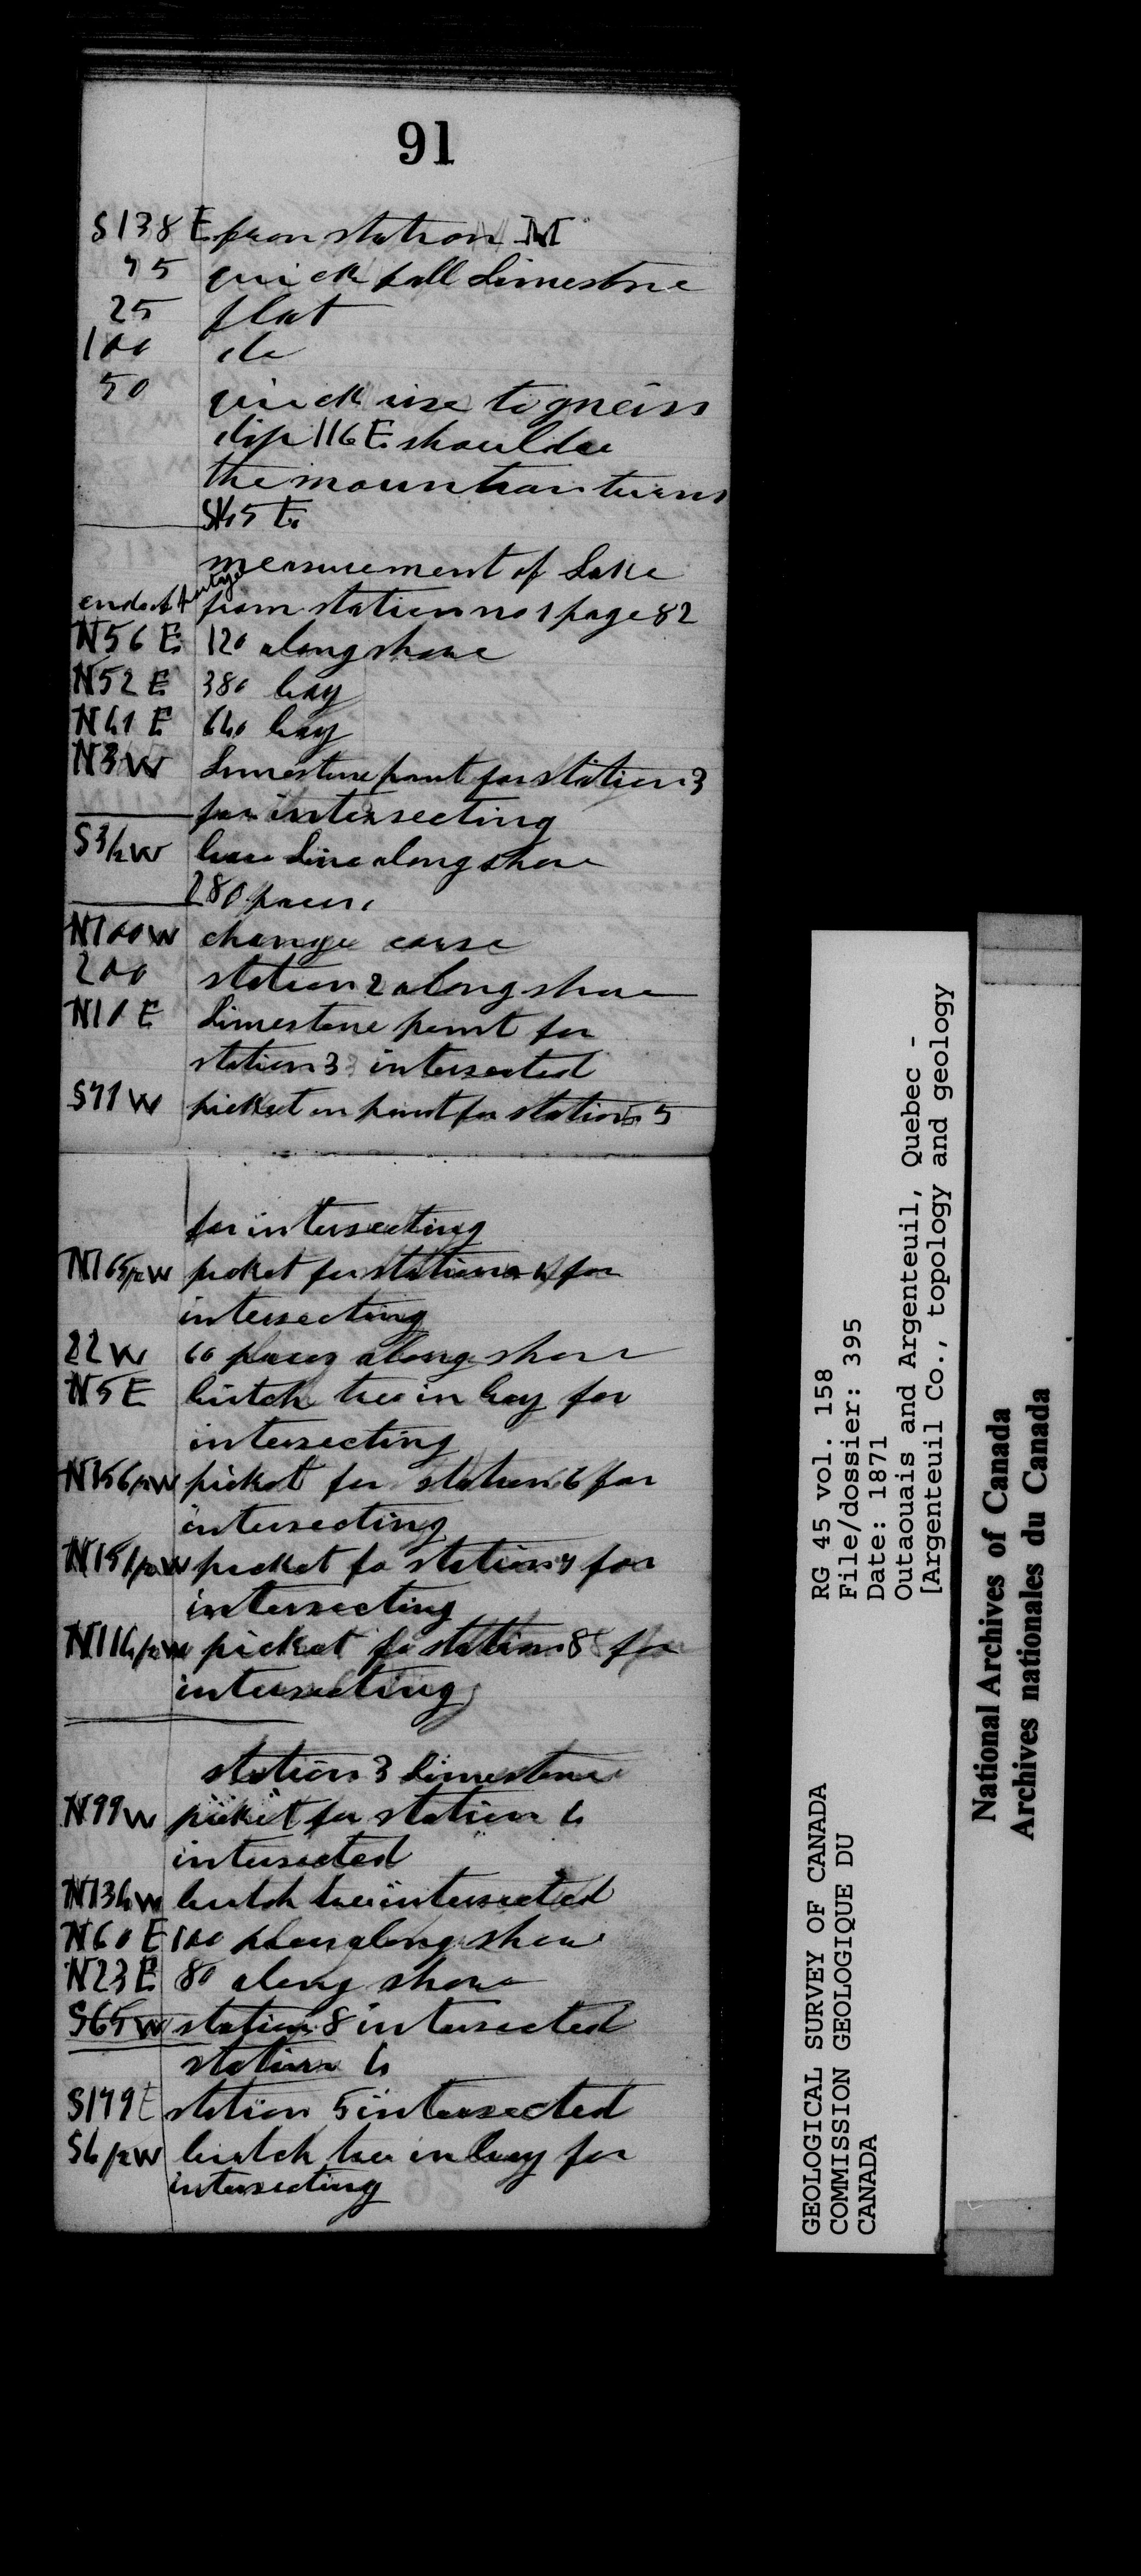 91
S138 E from station M
75 quick fall Limestone
25 flat
100 do
50 quick rise to gneiss
dip 116 E shoulder
the mountain turns
S45 E
measurement of Lake
end of portage from station no 1 page 82
N56 E 120 along shore
N52 E 380 bay
N41 E 640 bay
N3 W Limestone point for station 3
for intersecting
S3/2 W base line along shore
280 paces
N100 W change corse
200 station 2 along shore
N10 E Limestone point for
station 3 intersected
S71 W picket on point for station 5
for intersecting
N165/2 W picket for station 4 for
intersecting
22 W 60 paces along shore
N5 E birtch tree in bay for
intersecting
N156/2 W picket for station 6 for
intersecting
N151/2 W picket fo station 7 for
intersecting
N114/2 W picket fo station 8 for
intersecting
station 3 Limestone
N99 W picket for station 4
intersected
N134 W birtch tree intersected
N60 E 100 paces along shore
N23 E 80 along shore
S65 W station 8 intersected
station 4
S179 E station 5 intersected
S4/2 W birtch tree in bay for
intersecting
GEOLOGICAL SURVEY OF CANADA
COMMISSION GEOLOGIQUE DU
CANADA
RG 45 vol. 158
File/dossier: 395
Date: 1871
Outaouais and Argenteuil, Quebec -
[Argenteuil Co., topology and geology
National Archives of Canada
Archives nationales du Canada